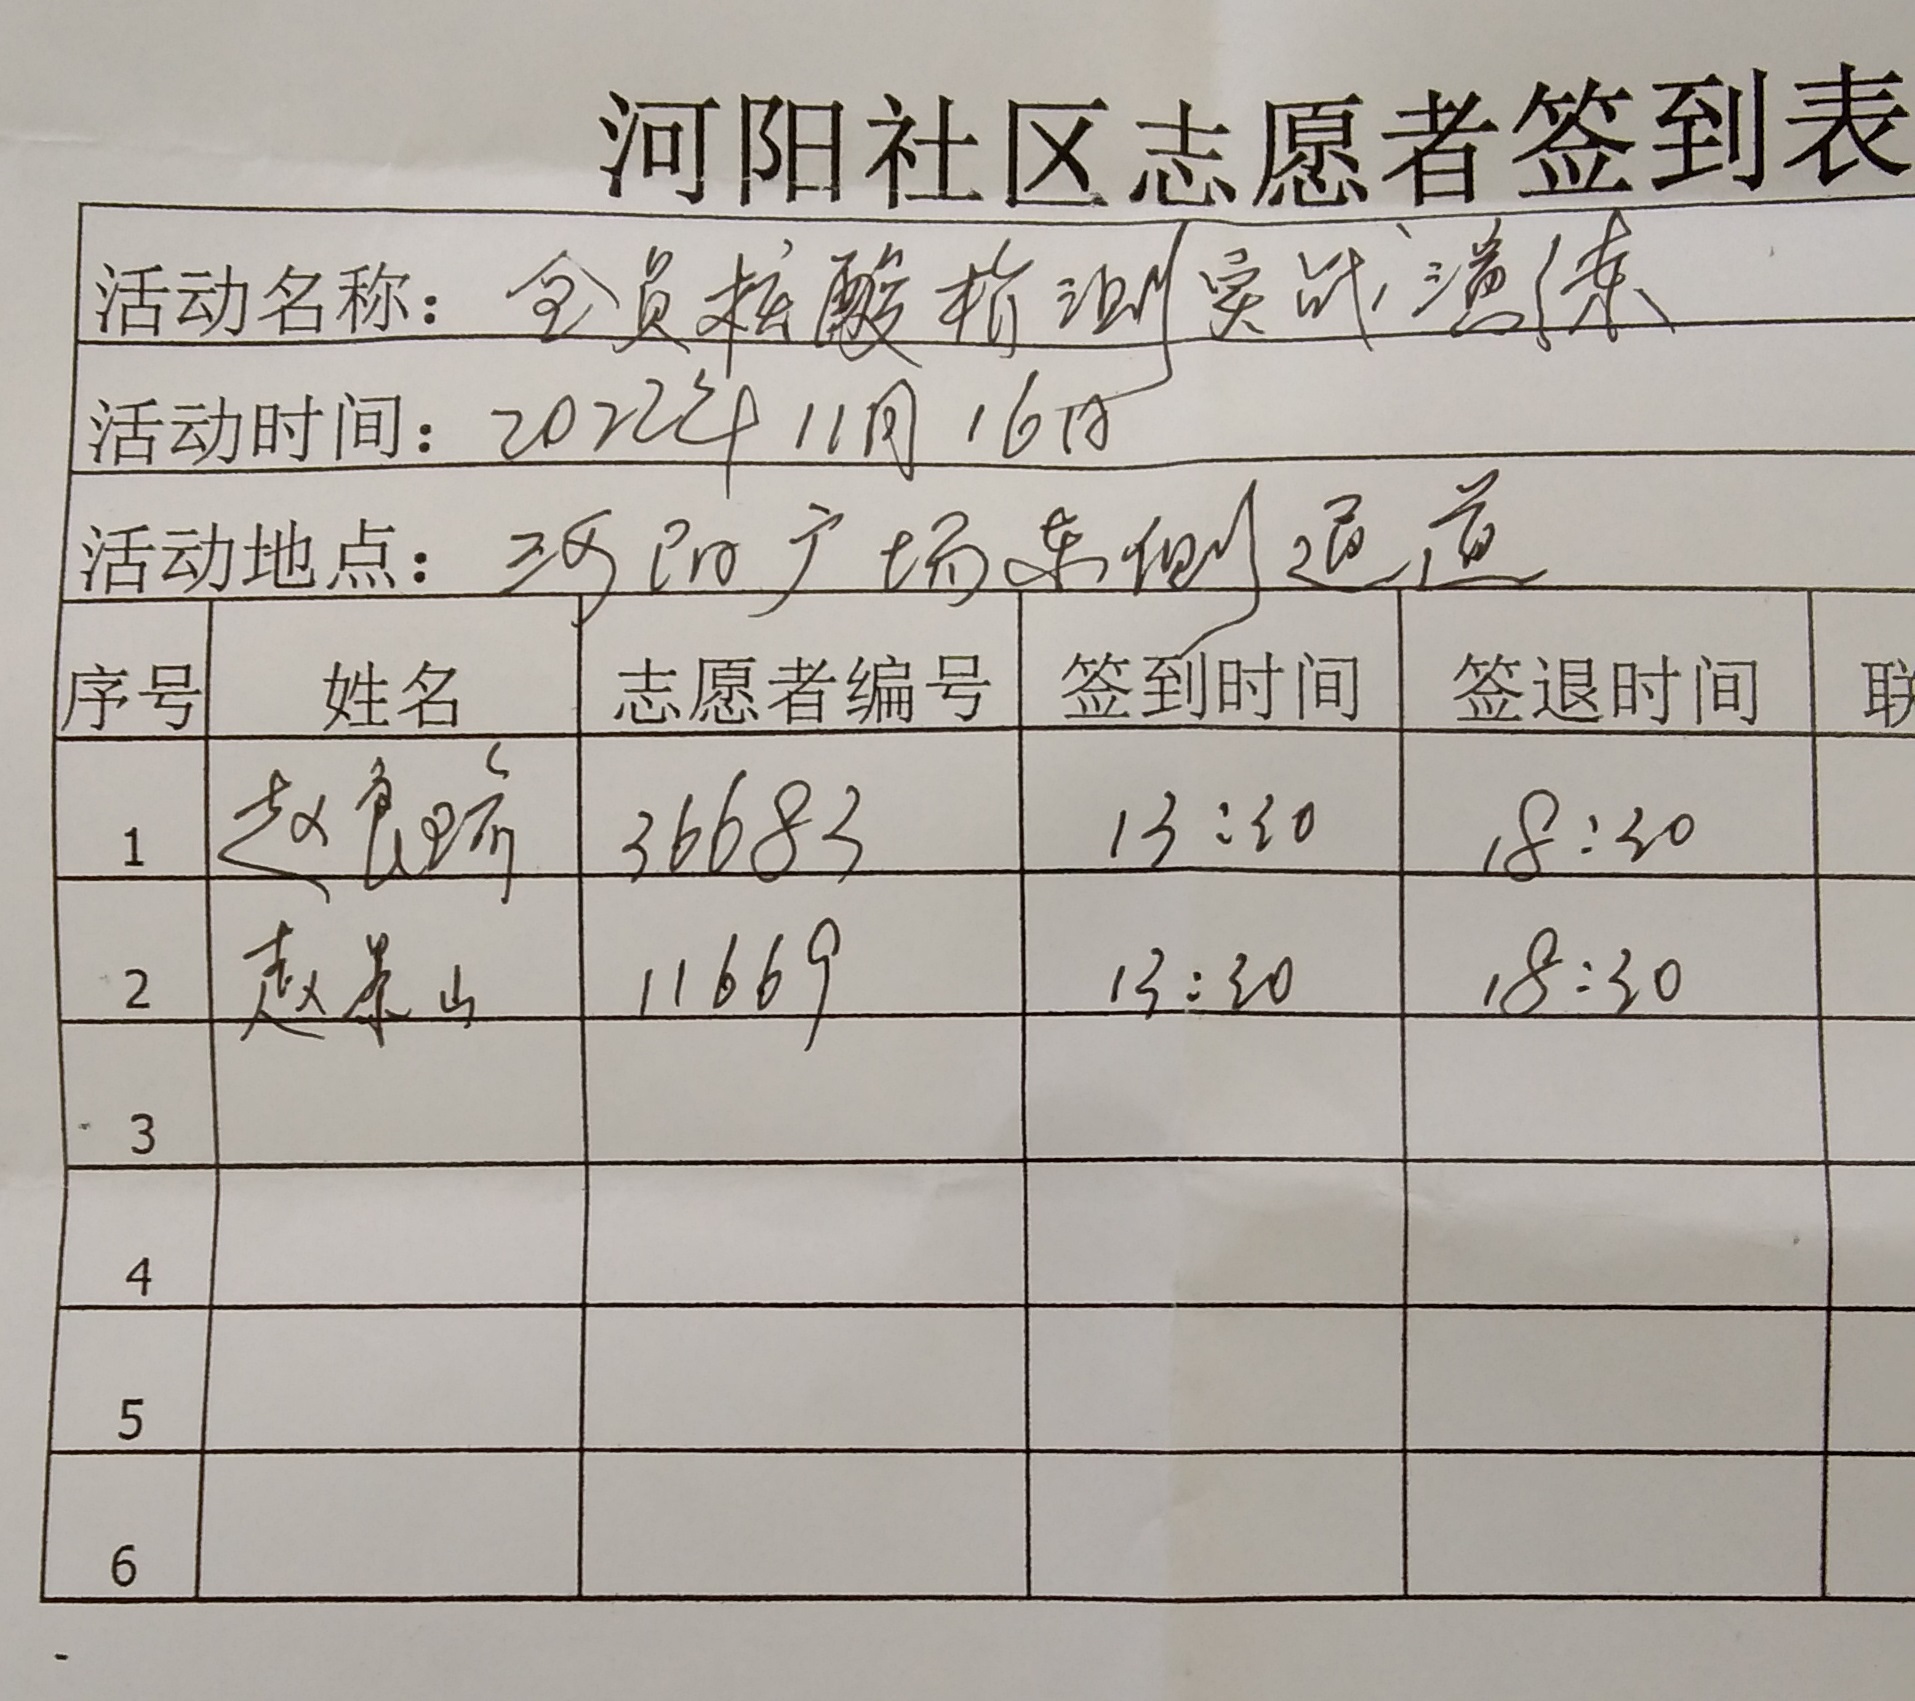 河阳社区志愿者签到表
活动名称：全员核酸检测实战演练
活动时间：2022年11月16日
活动地点：河阳广场东侧通道
序号 姓名 志愿者编号 签到时间 签退时间 联
1 赵良 36683 13:30 18:30
2 赵景山 11669 13:30 18:30
3
4
5
6